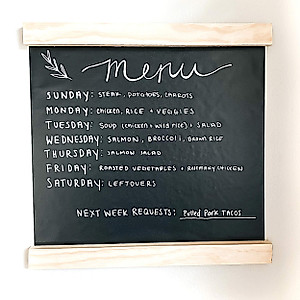 menu
SUNDAY: STEAK, POTATOES, CARROTS
MONDAY: CHICKEN, RICE + VEGGIES
TUESDAY: SOUP (CHICKEN + WILD RICE) + SALAD
WEDNESDAY: SALMON, BROCCOLI, BROWN RICE
THURSDAY: SALMON SALAD
FRIDAY: ROASTED VEGETABLES + ROSEMARY CHICKEN
SATURDAY: LEFTOVERS
NEXT WEEK REQUESTS: Pulled Pork TACOS